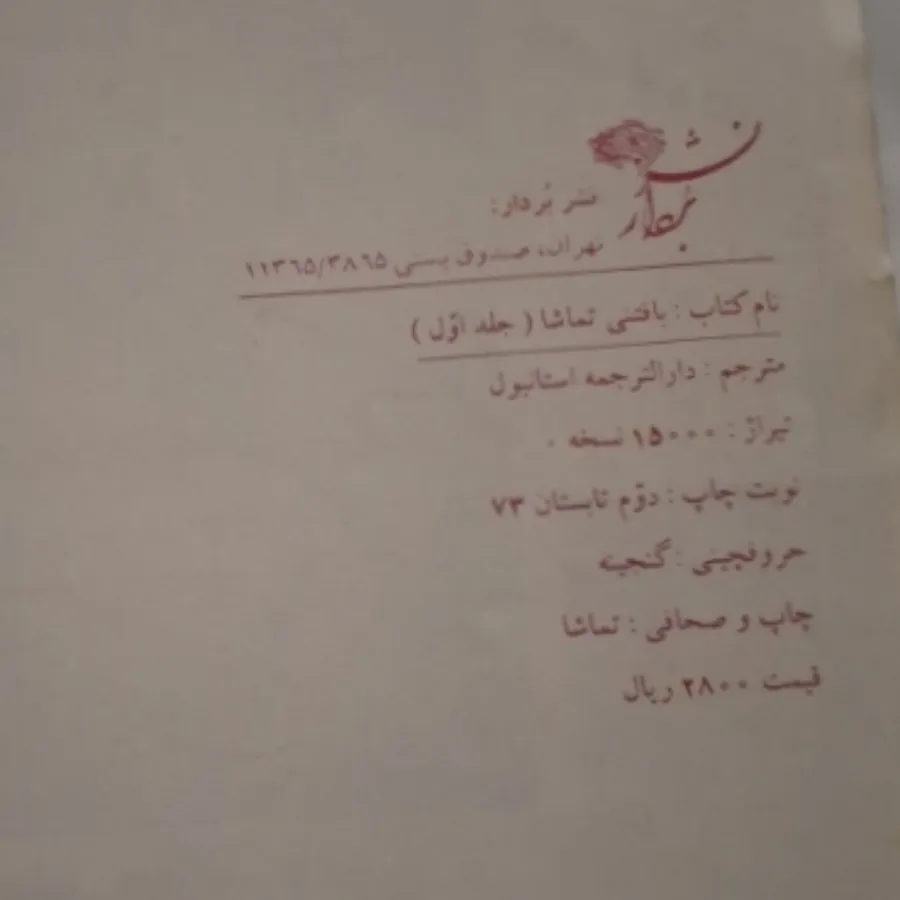 نشر بُردار
نشر بُردار:
تهران، صندوق پستی ۱۱۳۶۵/۳۸۶۵
نام کتاب : بافتنی تماشا ( جلد اوّل )
مترجم : دارالترجمه استانبول
تیراژ : ۱۵۰۰۰ نسخه .
نوبت چاپ : دوّم تابستان ۷۳
حروفچینی : گنجینه
چاپ و صحافی : تماشا
قیمت ۲۸۰۰ ریال